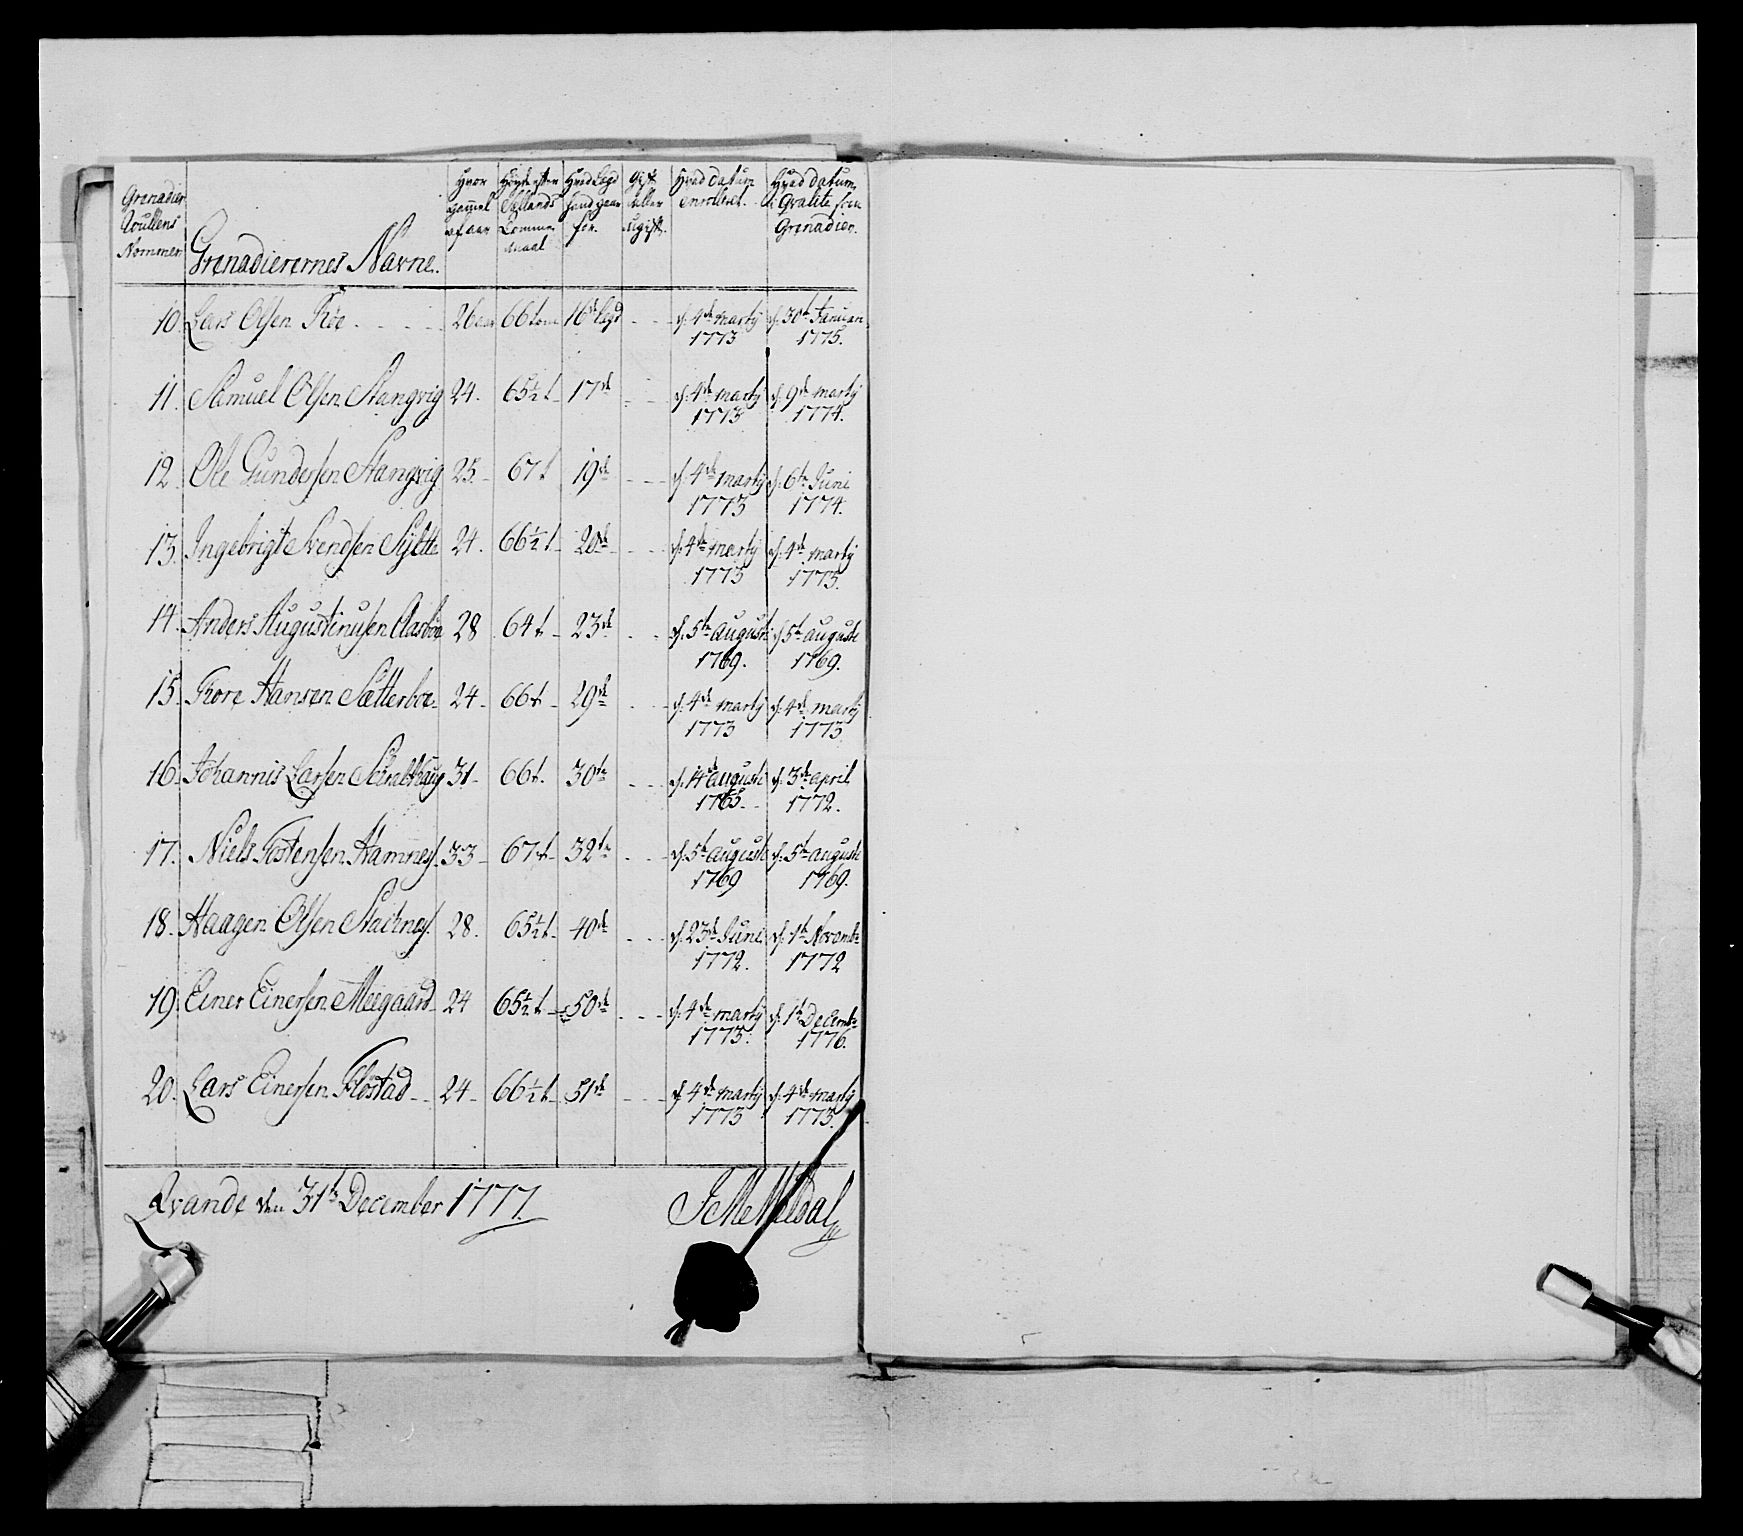 Grenadier Rullens Nommer | Grenadierernes Navne. | Hvor gammel af aar | Høyde efter Sellands Tomme maal | Hvad Legd hand gaar for. | Gift eller ugift. | Hvad Datum enrolleret. | Hvad Datum i Qvalite som Grenadier.
10. Lars Olsen Røe - - - - - 26 aar 66 tom 16de legd - - - d: 4de marty 1773 d: 30te Januari 1775.
11. Samuel Olsen Stangvig 24. 65½ t 17de - - - d: 4de marty 1773 d: 9de marty 1774.
12. Ole Gundersen Stangvig 25. - 67 t 19de - - - d: 4de marty 1773 d: 6te Juni 1774.
13. Ingebrigt Svendsen 24. 66½ t - 20de - - - - d: 4de marty 1773 d: 4de marty 1773.
14. Anders Augustinusen Aasboe 28 64 t - 23de - - d: 5te augusti 1769. d: 5te augusti 1769.
15. Tore Hansen Sætterboe - 24 - 66 t - 29de - - d: 4de marty 1773 d: 4de marty 1773
16. Johannis Larsen 31 - 66 t. 30te - - - d: augusti 1765. d: 3de april 1772.
17. Niels Tostensen Hamnes. 33 - 67 t - 32te - - - d: 5te augusti 1769 d: 5te augusti 1769.
18. Haagen Olsen 28. 65½ t - 40de - - - d: 23de Juni 1772. d: 1te Novembr 1772
19. Einer Einersen Meegaard - 24 65½ t - 50de - - - d: 4de marty 1773. d: 1te Decembr 1776.
20. Lars Einersen Flostad - - 24 - 66½ t - 51de - - - d: 4de marty 1773 d: 4de marty 1773.
Qvande den 31te December 1777. Meldal